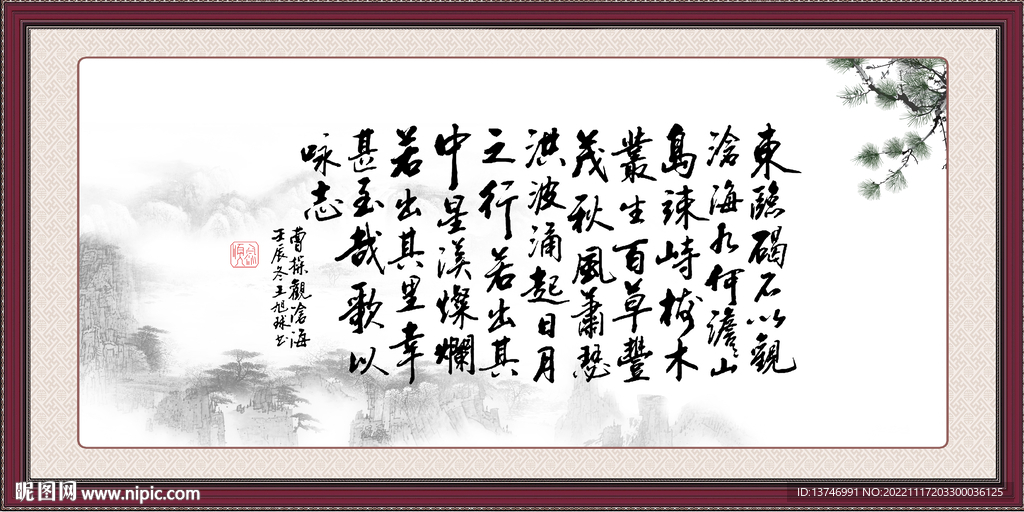 東臨碣石以觀
滄海水何澹〻山
島竦峙樹木
叢生百草豐
茂秋風蕭瑟
洪波涌起日月
之行若出其
中星漢燦爛
若出其里幸
甚至哉歌以
咏志
曹操觀滄海
壬辰冬王旭球书
昵图网 www.nipic.com
ID:13746991 NO:20221117203300036125